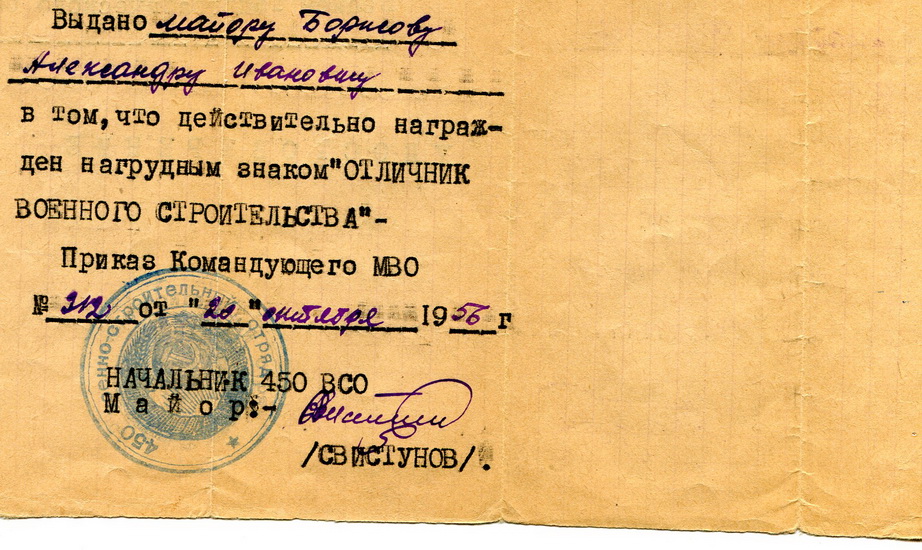 Выдано майору Борисову
Александру Ивановичу
в том, что действительно награж-
ден нагрудным знаком "ОТЛИЧНИК
ВОЕННОГО СТРОИТЕЛЬСТВА"-
Приказ Командующего МВО
№ 312 от "20" октября 1956 г
НАЧАЛЬНИК 450 ВСО
Майор:-
/СВИСТУНОВ/.
450 енно-строительный отряд